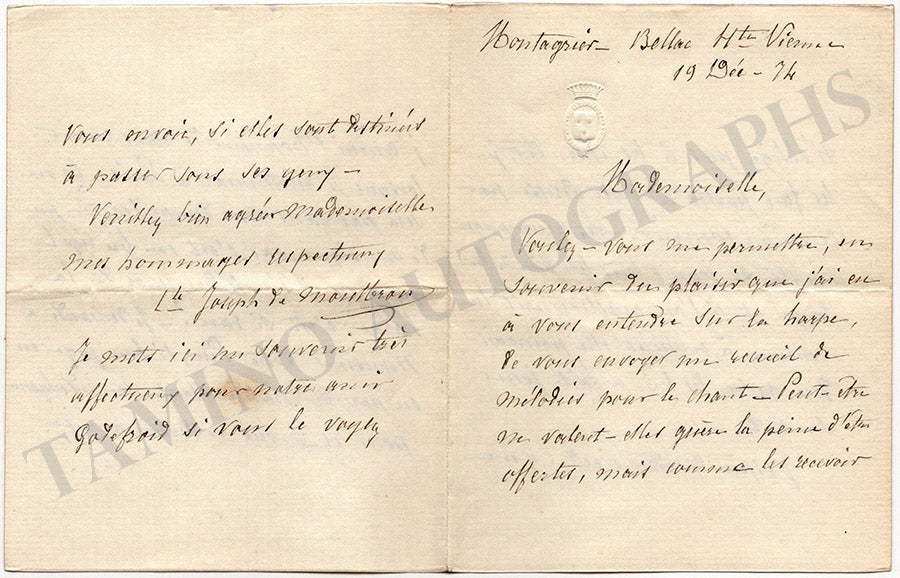 Montagrier - Bellac Hte Vienne
19 Déc - 74
Mademoiselle,
Voulez-vous me permettre, en
souvenir du plaisir que j'ai eu
à vous entendre sur la harpe,
de vous envoyer un recueil de
mélodies pour le chant - Peut-être
ne valent-elles guère la peine d'être
offertes, mais comme les recevoir
vous envoie, si elles sont destinées
à passer sous ses yeux -
Veuillez bien agréer Mademoiselle
mes hommages respectueux
Cte Joseph de Montbron
Je mets ici un souvenir très
affectueux pour notre ami
Godefroid si vous le voyez
TAMINO AUTOGRAPHS